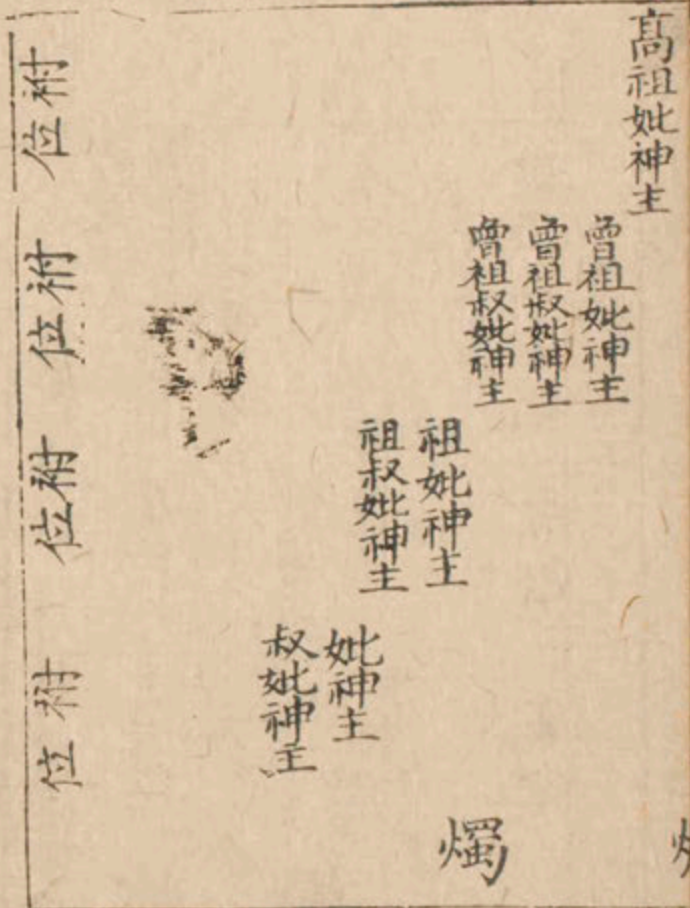 高祖妣神主
曾祖妣神主
曾祖叔妣神主
曾祖叔妣神主
祖妣神主
祖叔妣神主
妣神主
叔妣神主
燭
祔位
祔位
祔位
祔位